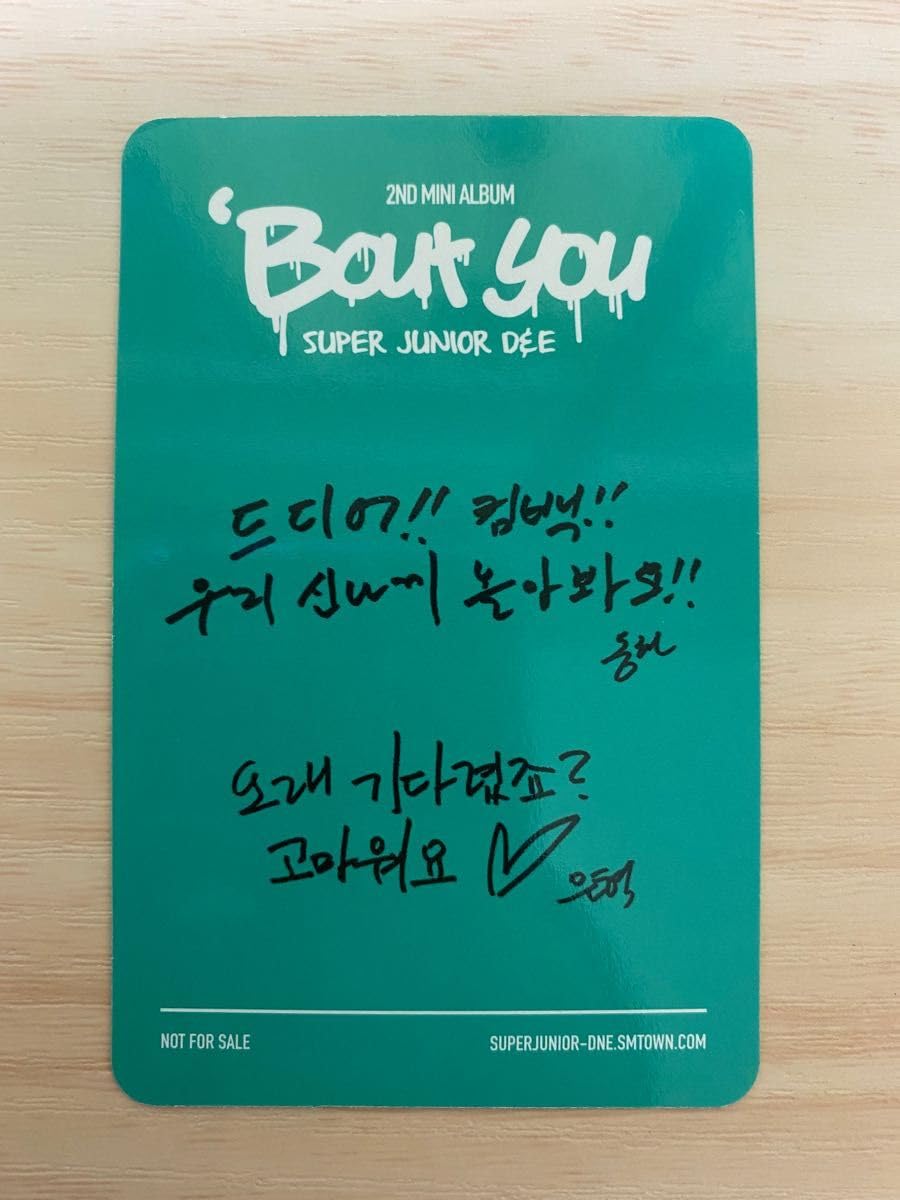 2ND MINI ALBUM
‘Bout you
SUPER JUNIOR D&E
드디어!! 컴백!!
우리 신나게 놀아봐요!!
동해
오래 기다렸죠?
고마워요 ♡ 은혁
NOT FOR SALE SUPERJUNIOR-DNE.SMTOWN.COM